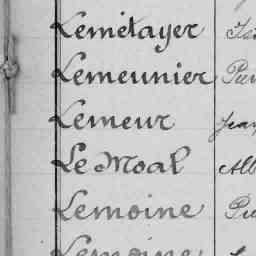 Lemétayer
Lemeunier
Lemeur Jean
Le Moal Alb
Lemoine
Lemoine